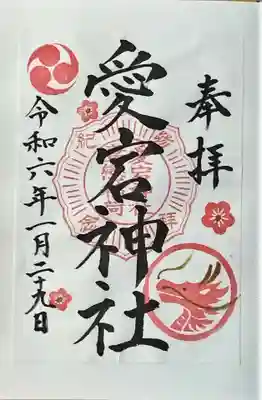 奉拝
愛宕神社
令和六年一月二十九日